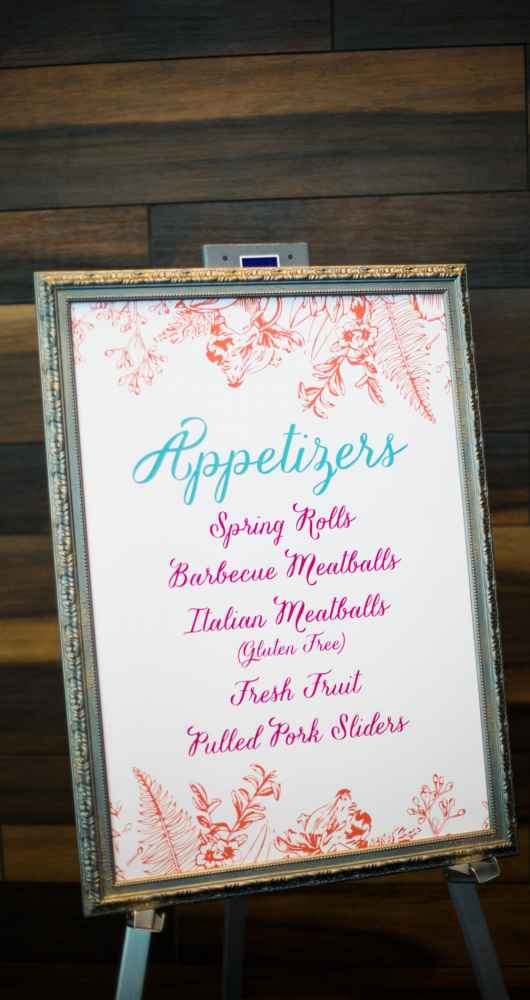 Appetizers
Spring Rolls
Barbecue Meatballs
Italian Meatballs
(Gluten Free)
Fresh Fruit
Pulled Pork Sliders